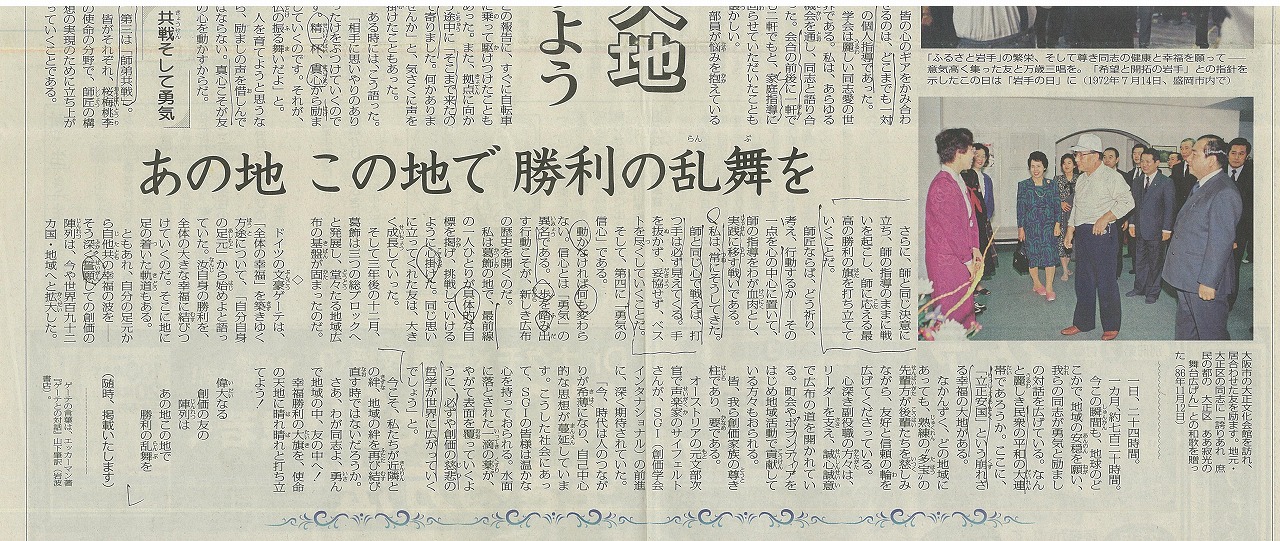 大地
よう
皆の心のギアをかみ合わ
せるのは、どこまでも一対
一の個人指導であった。
学会は麗しい同志愛の世
界である。私は、あらゆる
機会を通し、同志と語り合
った。会合の前後に一軒で
も二軒でもと、家庭指導に
回らせていただいたことも
懐かしい。
部員が悩みを抱えている
との報告に、すぐに自転車
に乗って駆けつけたことも
あった。また、拠点に向か
う途中に「ここまで来たの
で寄りました。何かありま
せんか」と、すぐに声を
掛けたこともある。
ある時には、こう語った。
「相手に思いやりのあり
ったけをぶつけていくので
す。精一杯、真心から励ま
していくのです。それが、
仏の振る舞いだよ」と。
人を育てようと思うな
ら、励ましの声を惜しんで
はならない。真心こそが友
の心を動かすからだ。
共戦そして勇気
第三は「師弟共戦」。
皆がそれぞれ、桜梅桃李
の使命の分野で、師匠の構
想の実現のために立ち上が
っていくことである。
「ふるさと岩手」の繁栄、そして尊き同志の健康と幸福を願って――
意気高く集った友と万歳三唱を。「希望と開拓の岩手」との指針を
示したこの日は「岩手の日」に(1972年7月14日、盛岡市内で)
あの地 この地で 勝利の乱舞を
さらに、師と同じ決意に
立ち、師の指導のままに戦
いを起こし、師に応える最
高の勝利の旗を打ち立てて
いくことだ。
師匠ならば、どう祈り、
考え、行動するか――その
一点を心の中心に置いて、
師の指導を我が血肉とし、
実践に移す戦いである。
私は、常にそうしてきた。
師と同じ心で戦えば、打
つ手は必ず見えてくる。手
を抜かず、妥協せず、ベス
トを尽くしていくことだ。
そして、第四に「勇気の
信心」である。
動かなければ何も変わら
ない。信心とは「勇気」の
異名である。一歩を踏み出
す行動こそが、新しき広布
の歴史を開くのだ。
私は葛飾の地で、最前線
の一人ひとりが具体的な目
標を掲げ、挑戦していける
よう心を砕いた。同じ思い
にたって戦われた友は、大き
く成長していった。
そして三年後の十二月、
葛飾は二つの総ブロックへ
と発展し、堂々たる地域広
布の基盤が固まったのだ。
◇
ドイツの文豪ゲーテは、
「全体の幸福」を築きゆく
方途について、「自分自身
の足元」から始めよと語っ
ていた。汝自身の勝利を、
全体の大きな幸福に結びつ
けていくのだ。そこに地に
足の着いた軌道もある。
ともあれ、自分の足元か
ら自他共の幸福の波を――
そう深く誓願しての創価の
陣列は、今や世界百九十二
カ国・地域へと拡大した。
大阪市の大正文化会館を訪れ、
居合わせた友を励ます。地元・
大正区の同志に「誇りあれ 庶
民の都の 大正区 ああ寂光の
舞台 広びろ」との和歌を贈っ
た(86年11月12日)
一日、二十四時間。
一カ月、約七百二十時間。
今この瞬間も、地球のど
こかで、地域の安穏を願い、
我らの同志が勇気と励まし
の対話を広げている。なん
と麗しき民衆の平和の大連
帯であろうか。ここに、
「立正安国」という崩れざ
る幸福の大地がある。
なかんずく、どの地域に
あっても、熟練の“多宝”の
先輩方が後輩たちを慈しみ
ながら、友好と信頼の輪を
広げてくださっている。
心深き副役職の方々は、
リーダーを支え、誠心誠意
で広布の道を開かれてい
る。町会やボランティアを
はじめ地域活動で貢献して
いる方々もおられる。
皆、我ら創価家族の尊き
柱であり、要である。
オーストリアの元文部次
官で声楽家のサイフェルト
さんが、SGI(創価学会
インタナショナル)の前進
に、深く期待されていた。
「今、時代は人々のつなが
りが希薄になり、自己中心
的な思想が蔓延していま
す。こうした社会にあっ
て、SGIの皆様は温かな
心を持っておられる。水面
に落とされた一滴の藁が、
やがて表面を覆っていくよ
うに、必ずや創価の慈悲の
哲学が世界に広がっていく
でしょう」と。
今こそ、私たちが“近隣と
の絆、地域の絆”を再び結び
直す時ではないだろうか。
さあ、わが同志よ、勇ん
で地域の中、友の中へ!
幸福勝利の大旗を、使命
の天地に晴れ晴れと打ち立
てよう!
偉大なる
創価の友の
陣列は
あの地この地で
勝利の乱舞を
(随時、掲載いたします)
ゲーテの言葉は、エッカーマン著
『ゲーテとの対話』山下肇訳、岩波
書店。